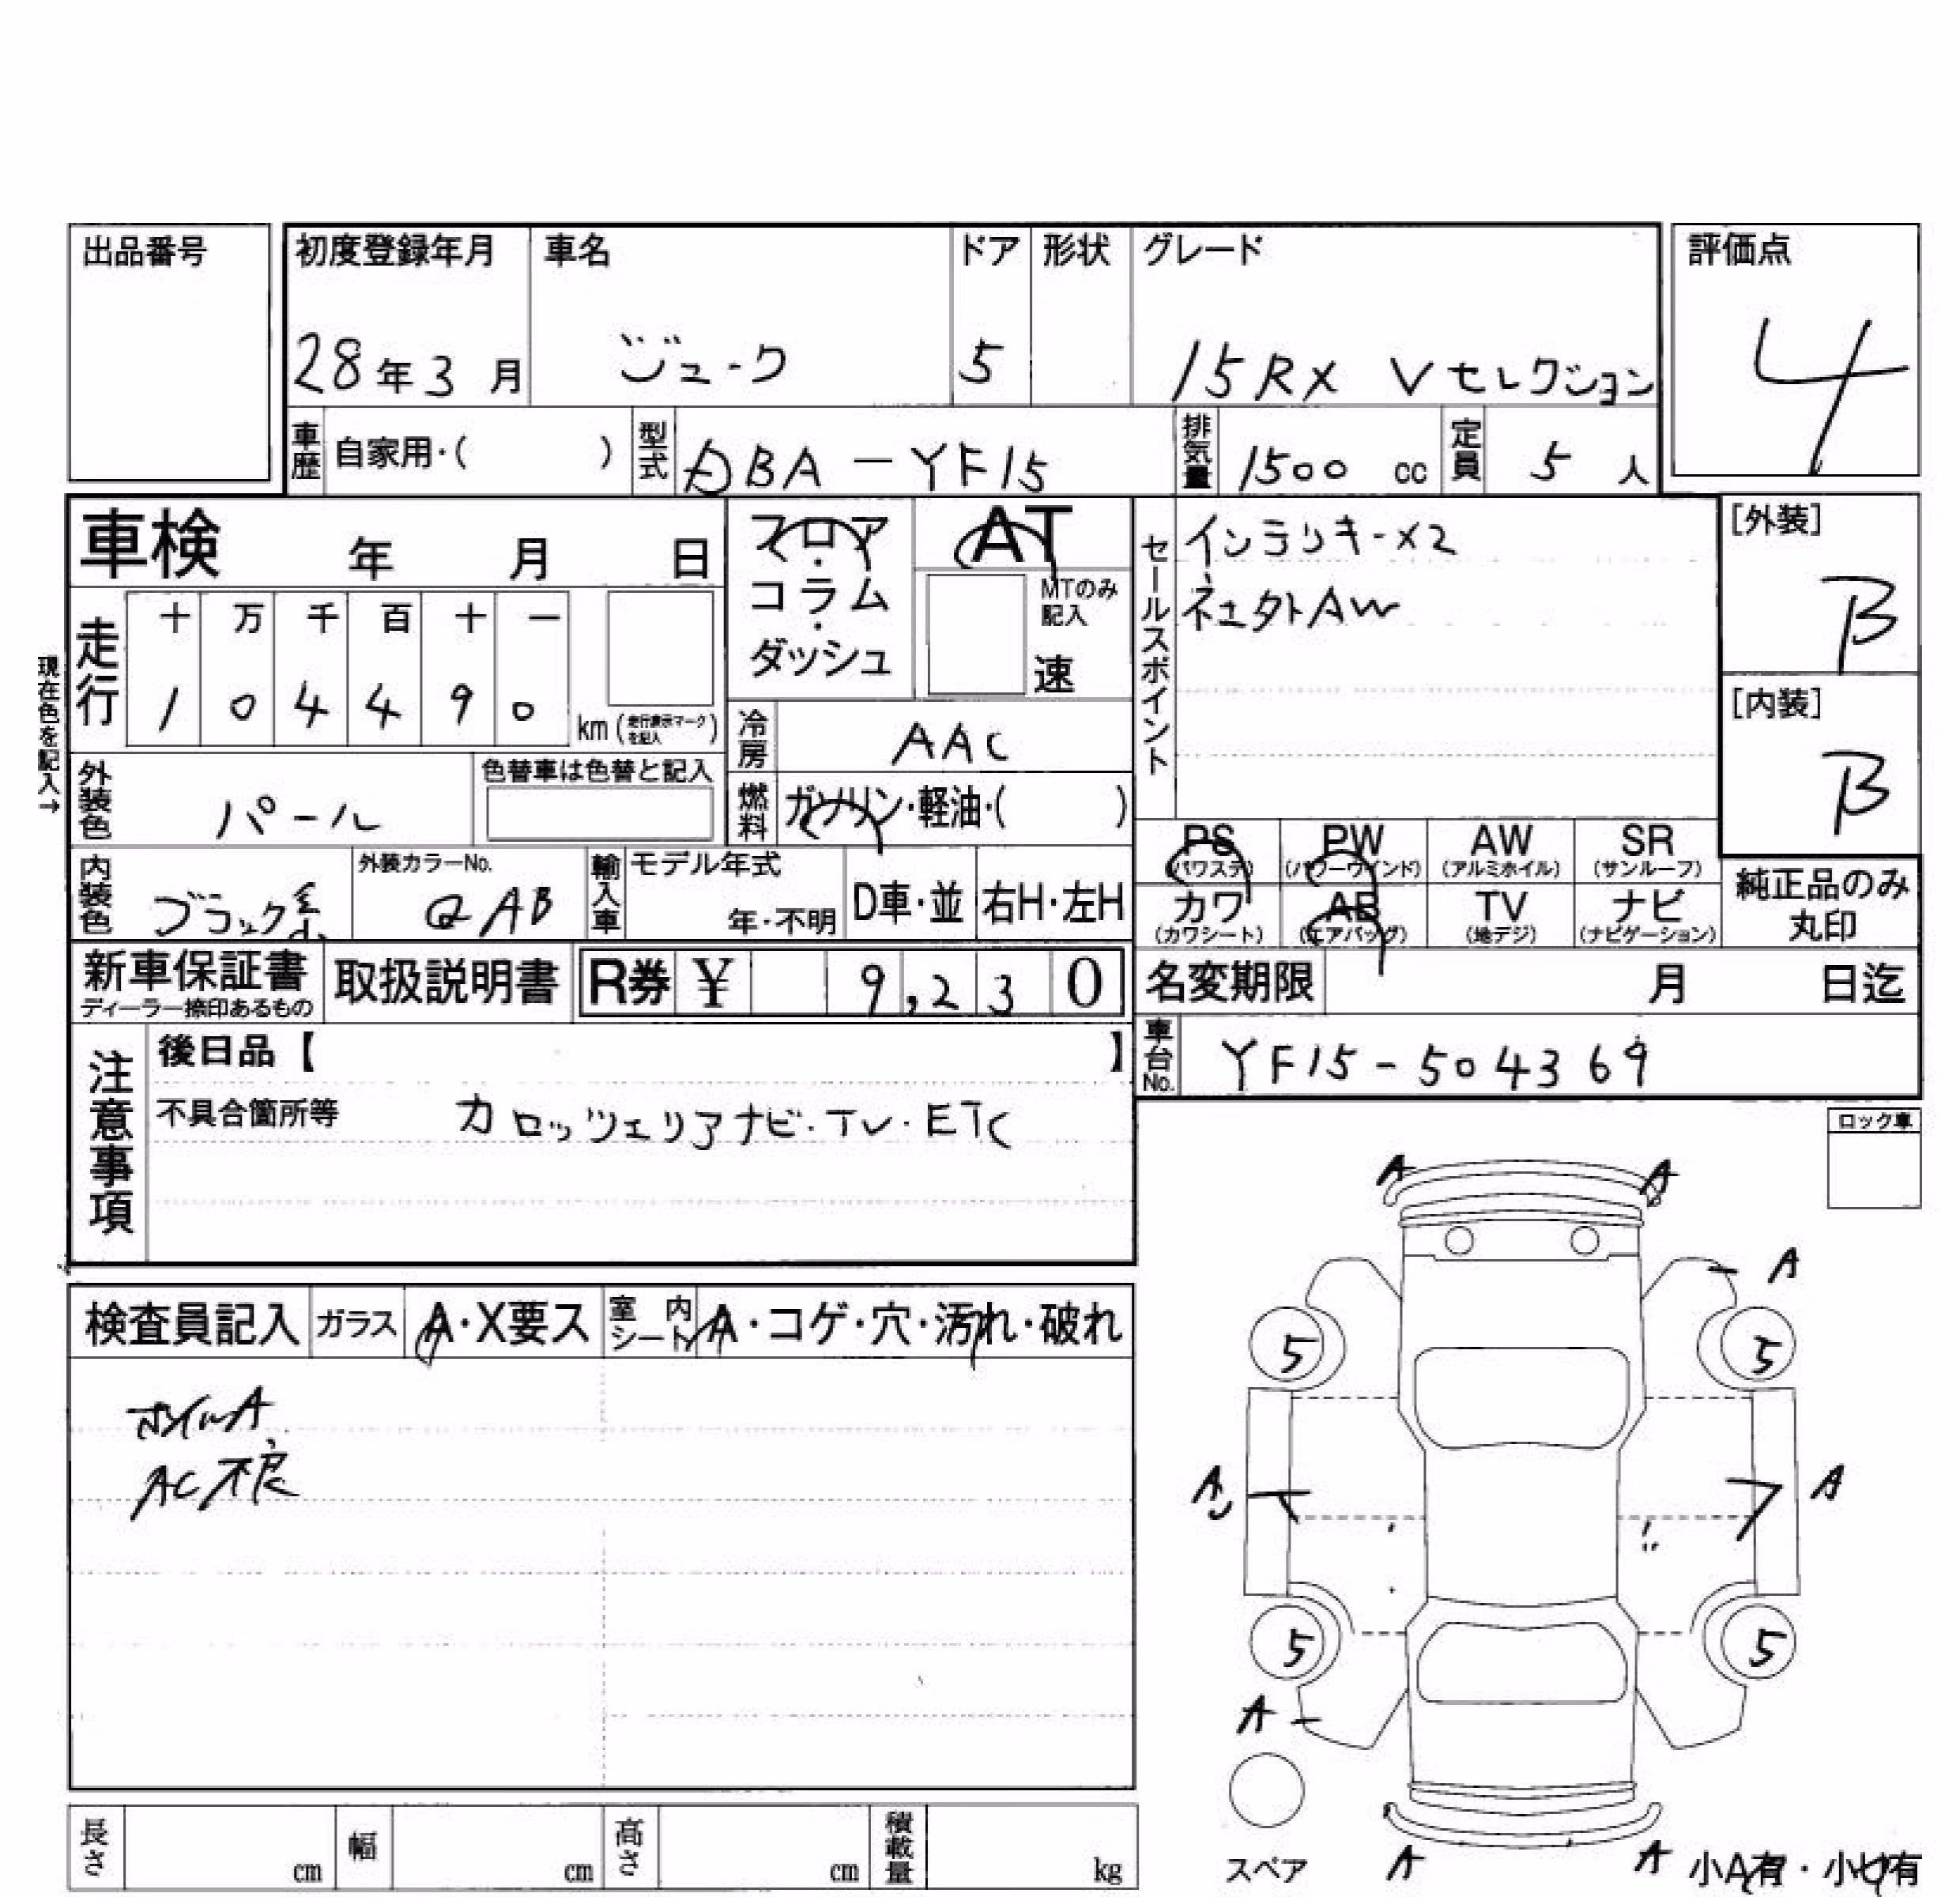 出品番号
初度登録年月 車名 ドア 形状 グレード 評価点
28年3月 ジューク 5 15RX Vセレクション 4
車歴 自家用・( ) 型式 DBA-YF15 排気量 1500 cc 定員 5 人
車検 年 月 日
フロア・コラム・ダッシュ
AT
MTのみ記入
速
セールスポイント
インテリキーX2
ネ土外AW
[外装]
B
[内装]
B
現在色を記入→
走行 十 万 千 百 十 一
1 0 4 4 9 0 km (走行表示マークを記入)
冷房 AAC
外装色 パール 色替車は色替と記入
燃料 ガソリン・軽油・( )
PS (パワステ) PW (パワーウインド) AW (アルミホイル) SR (サンルーフ)
カワ (カワシート) AB (エアバッグ) TV (地デジ) ナビ (ナビゲーション)
純正品のみ丸印
内装色 ブラック系 外装カラーNo. QAB 輸入車 モデル年式 年・不明 D車・並 右H・左H
新車保証書 ディーラー捺印あるもの 取扱説明書 R券 ¥ 9,230
名変期限 月 日迄
車台No. YF15-504369
注意事項
後日品【 】
不具合箇所等 カロッツェリアナビ・TV・ETC
ロック車
検査員記入 ガラス A・X要ス 室内シート A・コゲ・穴・汚れ・破れ
ホイールA
AC不良
A A
A
5 5
A A
5 5
A
スペア
A A
小A有・小U有
長さ cm 幅 cm 高さ cm 積載量 kg